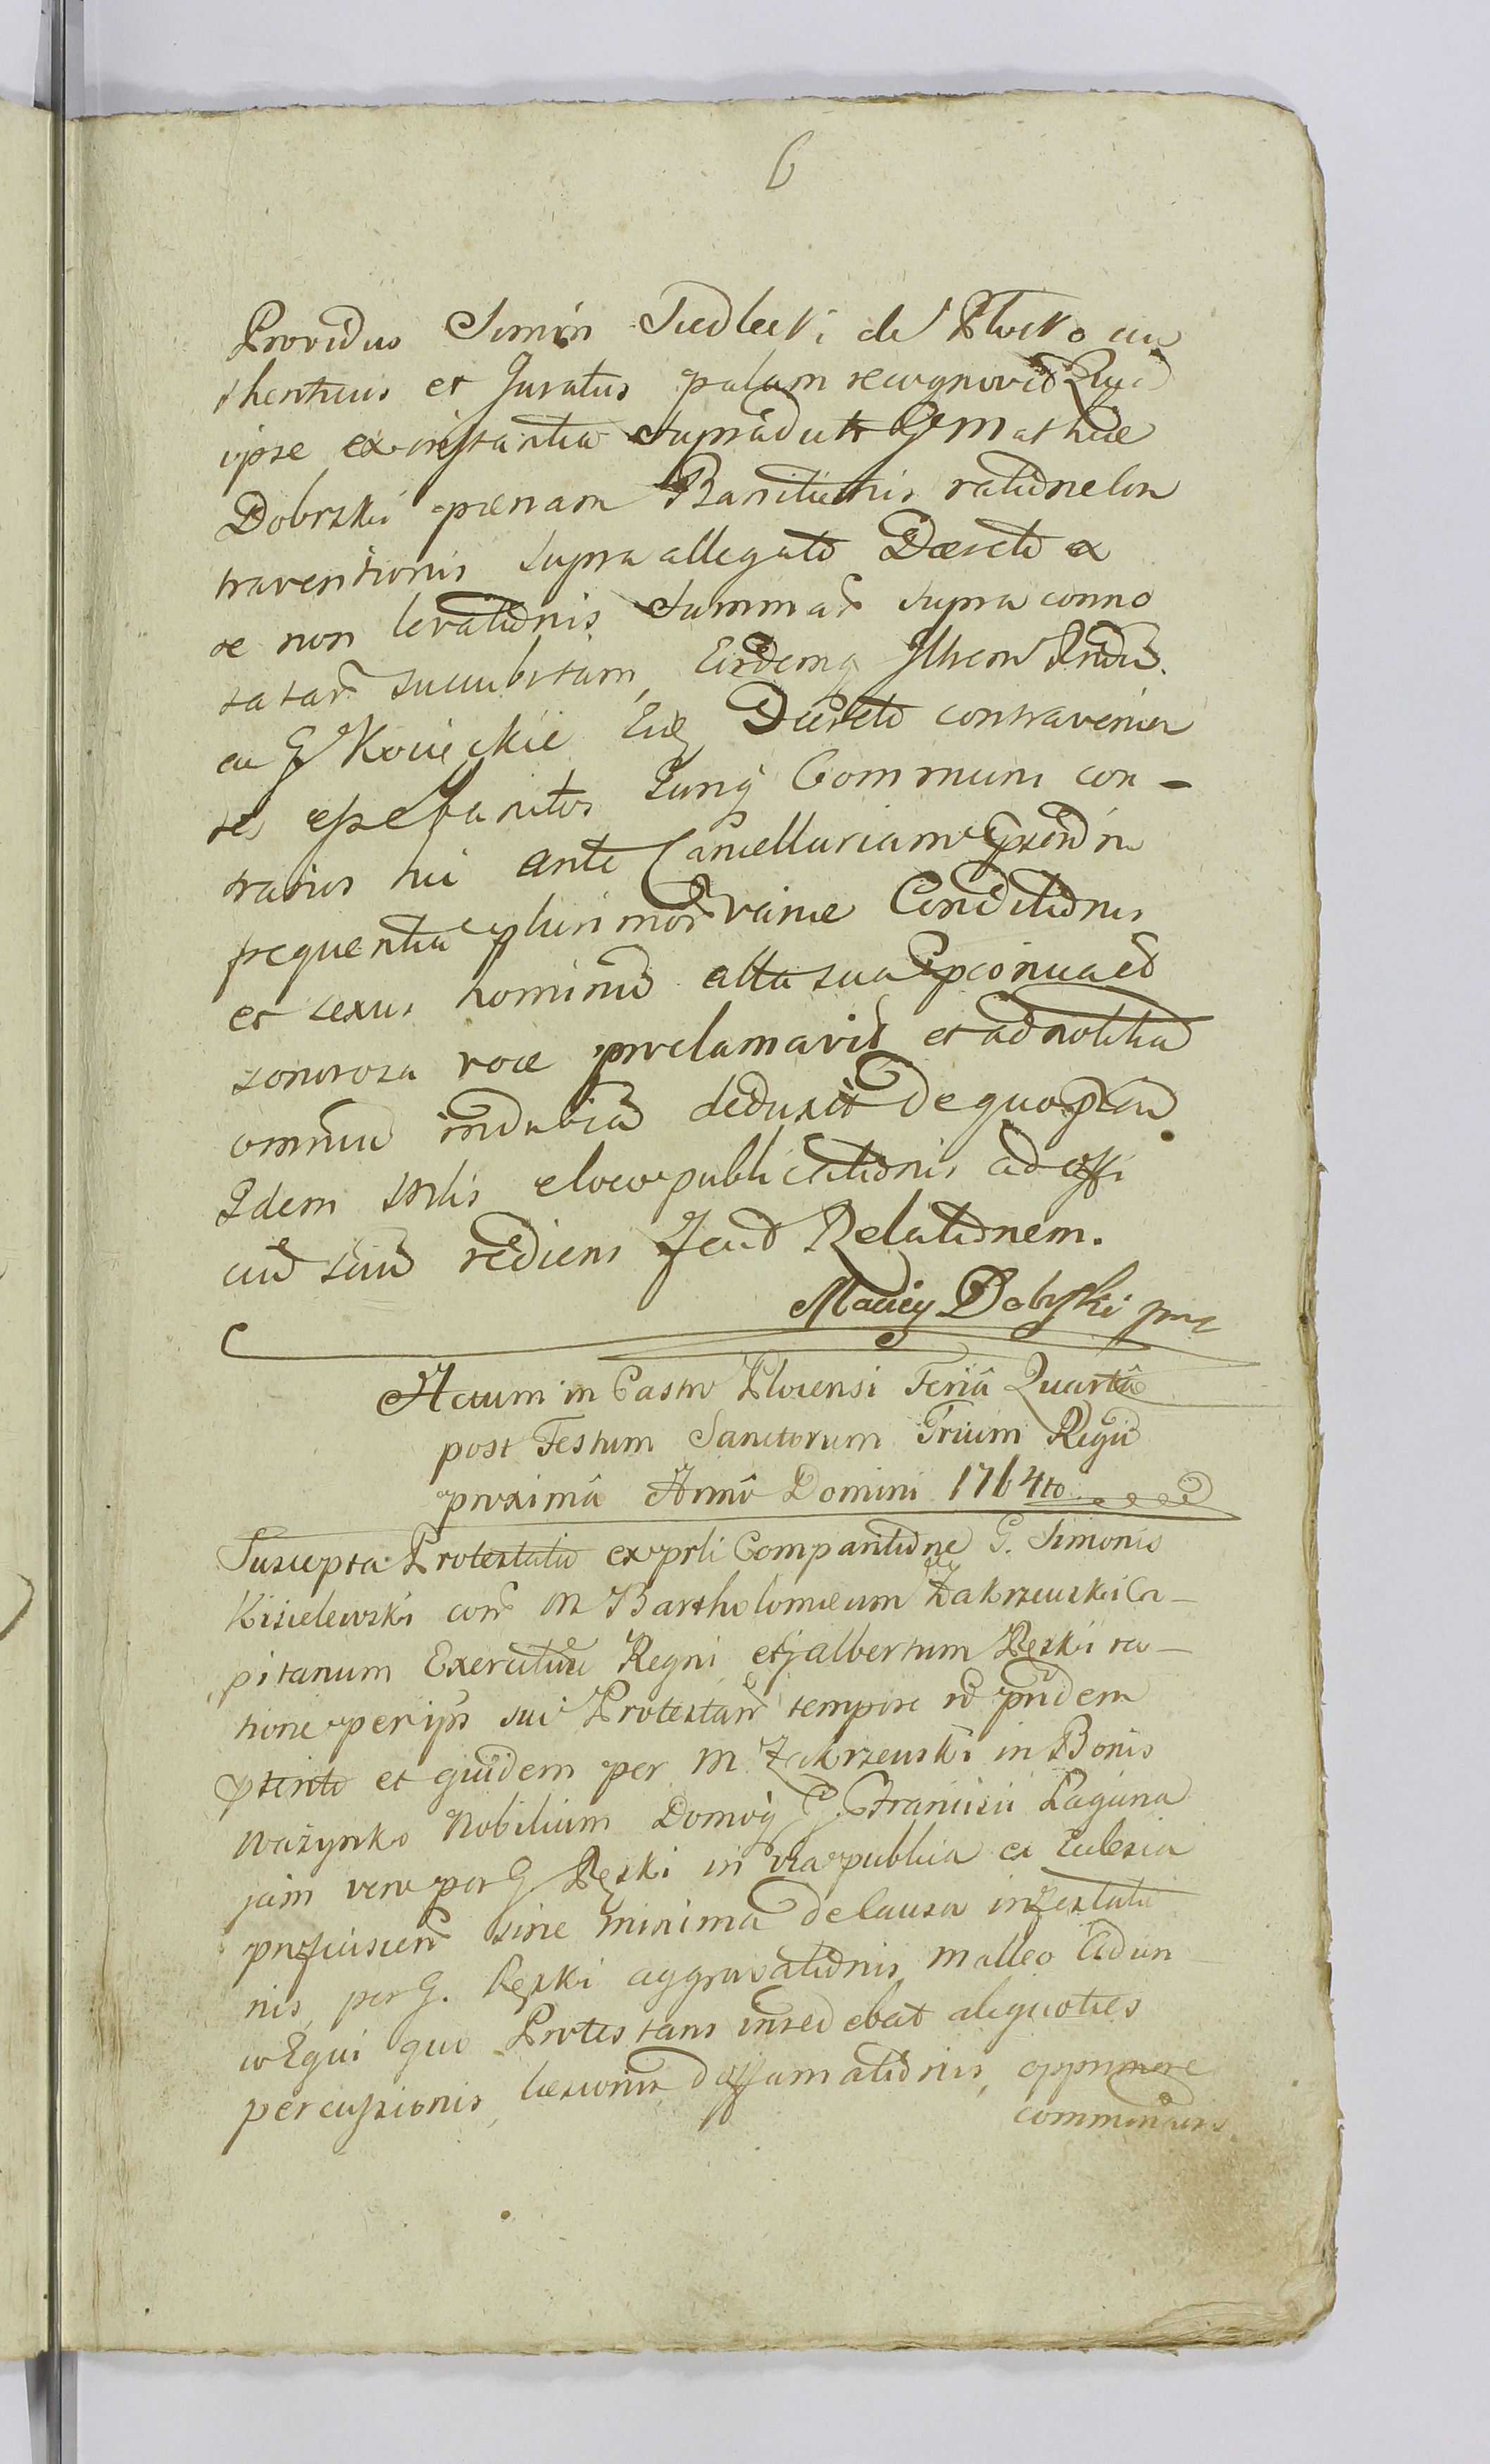 6
Providus Simon Siedlecki de Płocko au
thenticus et Juratus palam recognovit Quia
ipse ex instantia supradicti G Mathiæ
Dobrski pœnam Banitionis ratione con
traventionis supra allegato Decreto ex
se non levationis Summar supra conno
tatar succubitam, Eirdemq
G Kocieckie Eidq Decreto contravenien
tes esse banitos Eunq Communi con-
tratus hic ante Cancellariam
frequentia plurimor variæ Conditionis
et sexus hominu alta sua
sonorosa voce proclamavit et ad notitia
omniu indubia deduxit De quo
Idem e loco publicationis ad offi
ciu suu rediens fecit Relationem.
Maciey Dobrski
Actum in Castro Plocensi Feriâ Quartâ
post Festum Sanctorum Trium Regu
proximâ Anno Domini 1764to
Suscepta Protestatio ex prti Comparitione G. Simonis
Kisielewski con M Bartholomæum Zakrzewski Ca-
pitanum Exercitus Regni et Jalbertum Ręski ra-
tione per ips sui Protestan tempore no pridem
et quidem per M Zakrzewski in Bonis
Ważynko Nobilium Domoq G Francisci Łaguna
jam vero per G Ręski in via publica ex Eclesia
proficiscen sine minima de causa infestatio
nis, per G. Ręski aggravationis malleo
w Equi quo Protestans insedebat aliquoties
percussionis, læsionis diffamationis, opprimere
comminatis